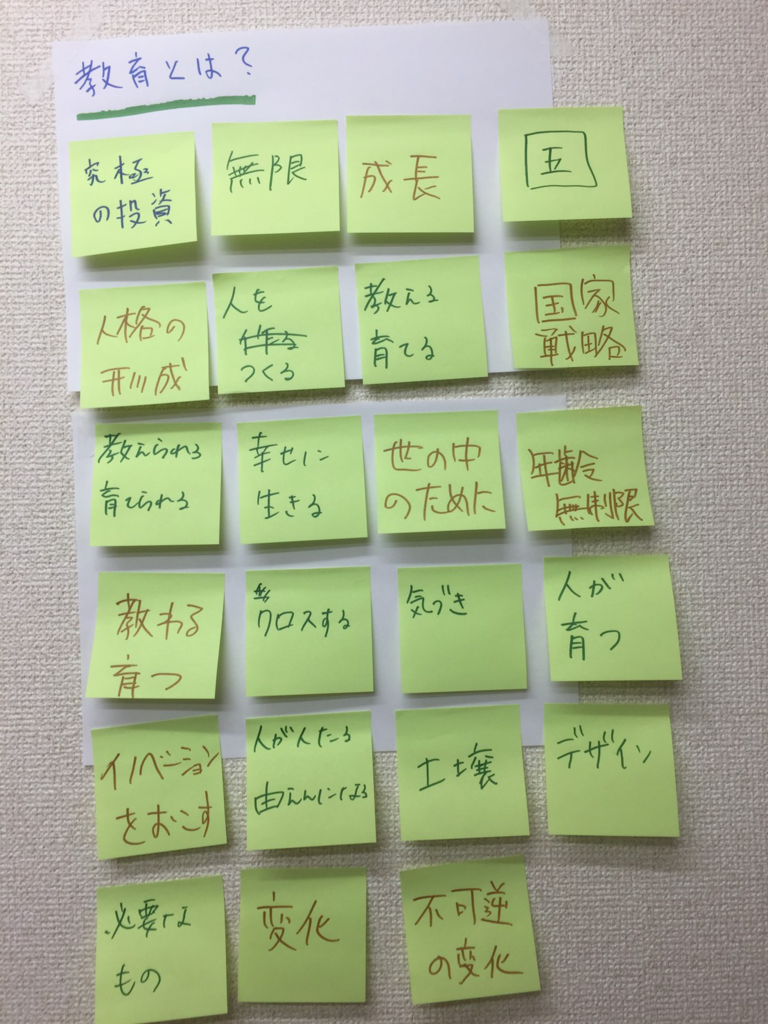 教育とは?
究極
の投資
無限
成長
国
人格の
形成
人を
作る
つくる
教える
育てる
国家
戦略
教えられる
育てられる
幸せに
生きる
世の中
のために
年齢
無制限
教わる
育つ
クロスする
気づき
人が
育つ
イノベーション
をおこす
人が人たる
由えんになる
土壌
デザイン
必要な
もの
変化
不可逆
の変化